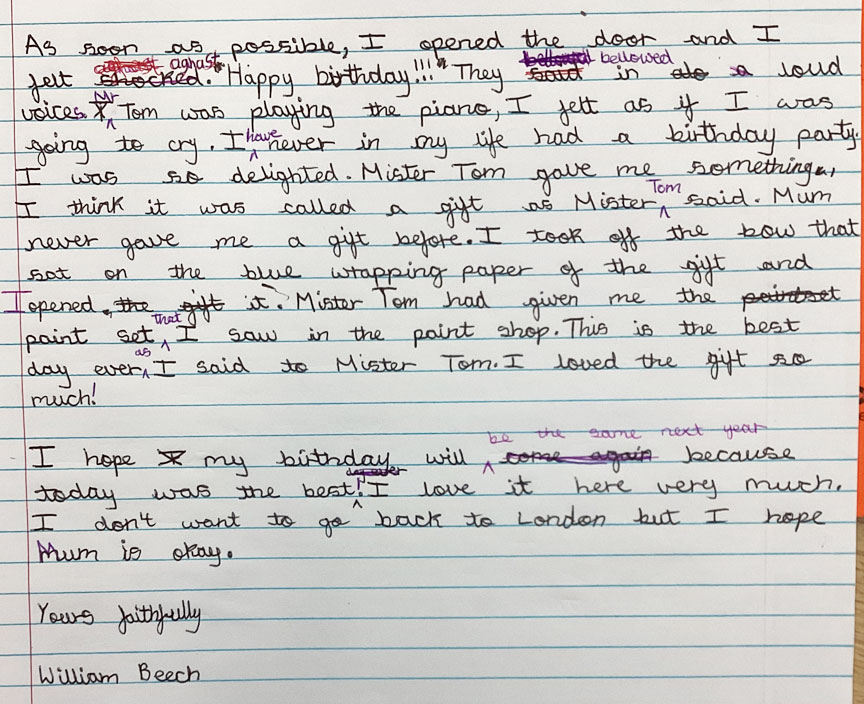 As soon as possible, I opened the door and I
aghast bellowed
felt shocked. "Happy birthday!!!" They said in a loud
Mr
voices. Tom was playing the piano, I felt as if I was
have
going to cry. I never in my life had a birthday party.
I was so delighted. Mister Tom gave me something,
Tom
I think it was called a gift as Mister said. Mum
never gave me a gift before. I took off the bow that
sat on the blue wrapping paper of the gift and
I opened the gift it. Mister Tom had given me the paintset
that
paint set, I saw in the paint shop. This is the best
as
day ever, I said to Mister Tom. I loved the gift so
much!
be the same next year
I hope my birthday will come again because
day ever
today was the best! I love it here very much.
I don't want to go back to London but I hope
Mum is okay.
Yours faithfully
William Beech